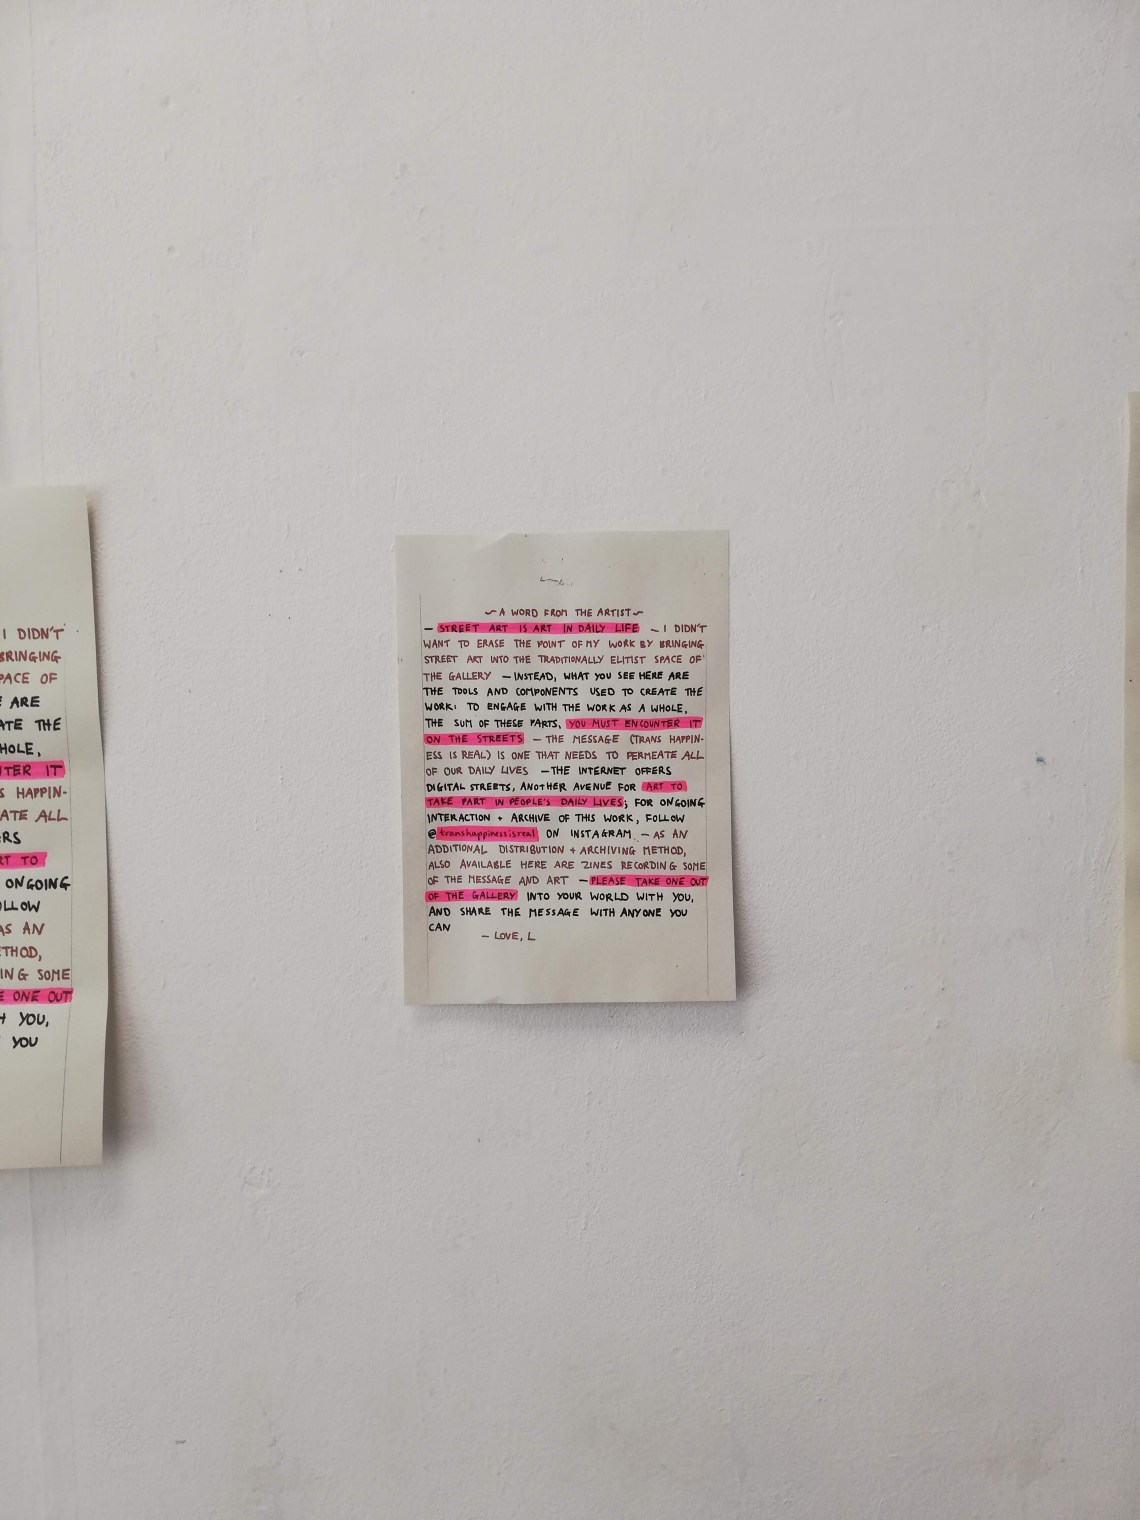 ~ A WORD FROM THE ARTIST ~
— STREET ART IS ART IN DAILY LIFE — I DIDN'T
WANT TO ERASE THE POINT OF MY WORK BY BRINGING
STREET ART INTO THE TRADITIONALLY ELITIST SPACE OF
THE GALLERY — INSTEAD, WHAT YOU SEE HERE ARE
THE TOOLS AND COMPONENTS USED TO CREATE THE
WORK: TO ENGAGE WITH THE WORK AS A WHOLE,
THE SUM OF THESE PARTS, YOU MUST ENCOUNTER IT
ON THE STREETS — THE MESSAGE (TRANS HAPPIN-
ESS IS REAL) IS ONE THAT NEEDS TO PERMEATE ALL
OF OUR DAILY LIVES — THE INTERNET OFFERS
DIGITAL STREETS, ANOTHER AVENUE FOR ART TO
TAKE PART IN PEOPLE'S DAILY LIVES; FOR ONGOING
INTERACTION + ARCHIVE OF THIS WORK, FOLLOW
@transhappinessisreal ON INSTAGRAM — AS AN
ADDITIONAL DISTRIBUTION + ARCHIVING METHOD,
ALSO AVAILABLE HERE ARE ZINES RECORDING SOME
OF THE MESSAGE AND ART — PLEASE TAKE ONE OUT
OF THE GALLERY INTO YOUR WORLD WITH YOU,
AND SHARE THE MESSAGE WITH ANYONE YOU
CAN
— LOVE, L
I DIDN'T
BRINGING
SPACE OF
ARE
THE
WHOLE,
IT
HAPPIN-
ALL
TO
ONGOING
FOLLOW
AS AN
METHOD,
SOME
ONE OUT
YOU,
YOU